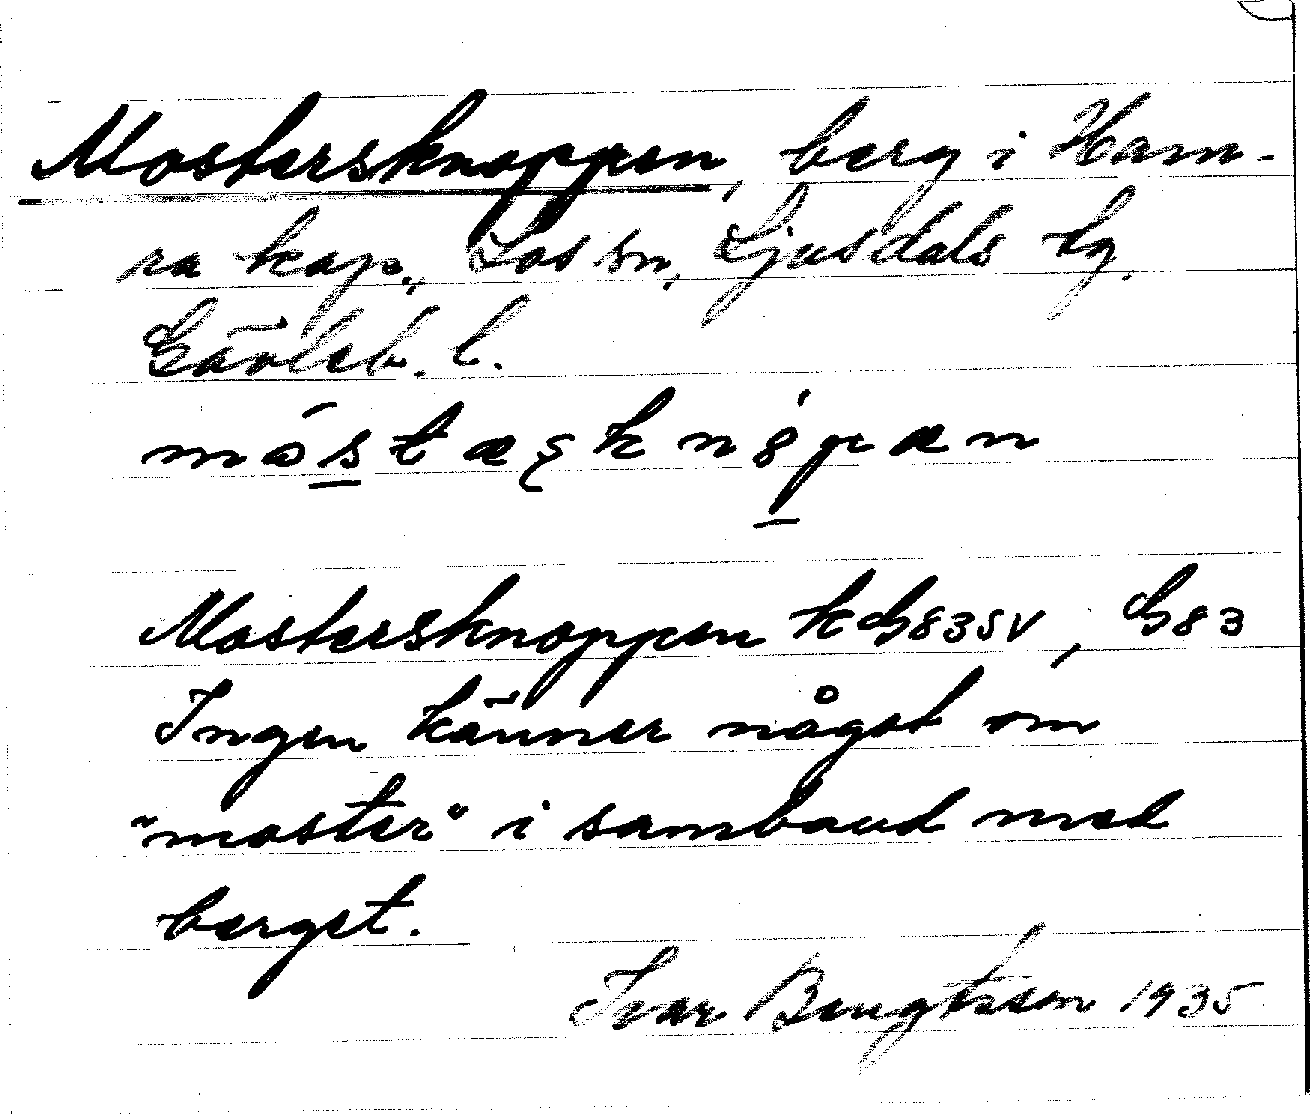 Mostersknoppen, berg i Ham-
ra kap., Los sn, Ljusdals tg.
Gävleb. l.
Mostersknoppen k G83SV, G83
Ingen känner något om
"moster" i samband med
berget.
Ivar Bengtsson 1935